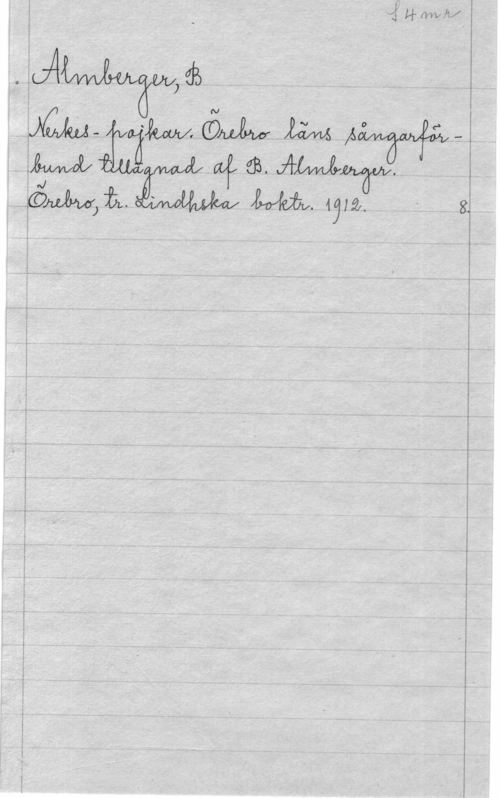 S 4 mr
Almberger, B
Nerkes-pojkar. Örebro läns sångarför-
bund tillägnad af B. Almberger.
Örebro, tr. Lindhska boktr. 1912. 8.